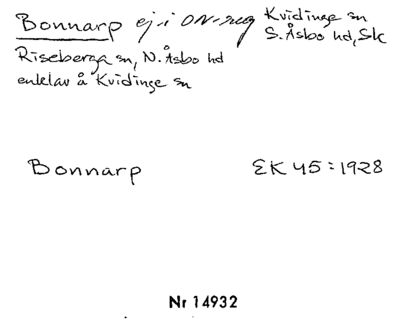 Bonnarp ej i ON-reg Kvidinge sn
S. Åsbo hd, Sk
Riseberga sn, N. Åsbo hd
enklav å Kvidinge sn
Bonnarp EK 45:1928
Nr 14932